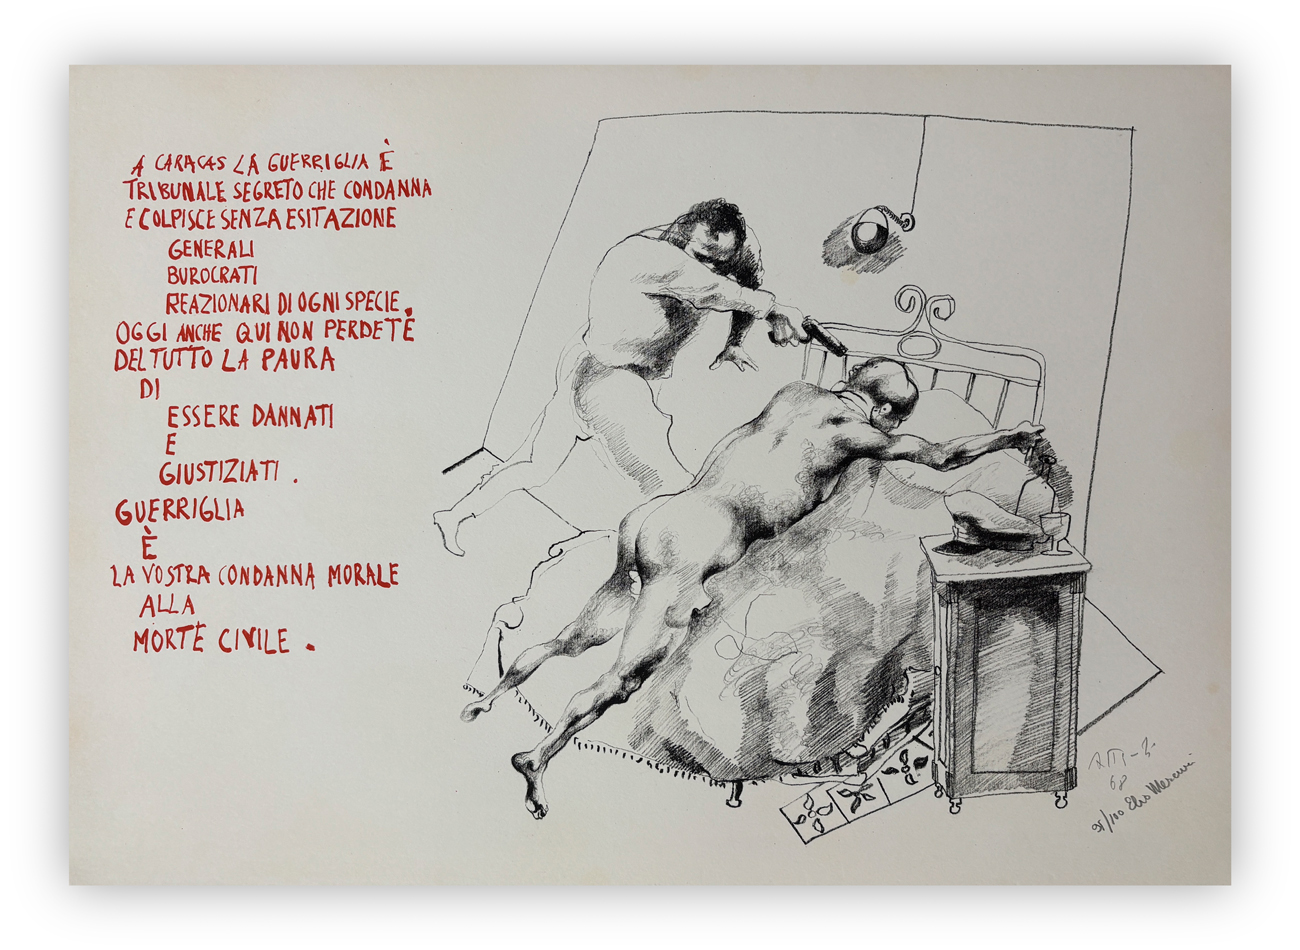 A CARACAS LA GUERRIGLIA È
TRIBUNALE SEGRETO CHE CONDANNA
E COLPISCE SENZA ESITAZIONE
GENERALI
BUROCRATI
REAZIONARI DI OGNI SPECIE.
OGGI ANCHE QUI NON PERDETE
DEL TUTTO LA PAURA
DI
ESSERE DANNATI
E
GIUSTIZIATI.
GUERRIGLIA
È
LA VOSTRA CONDANNA MORALE
ALLA
MORTE CIVILE.
68
/100 Elio